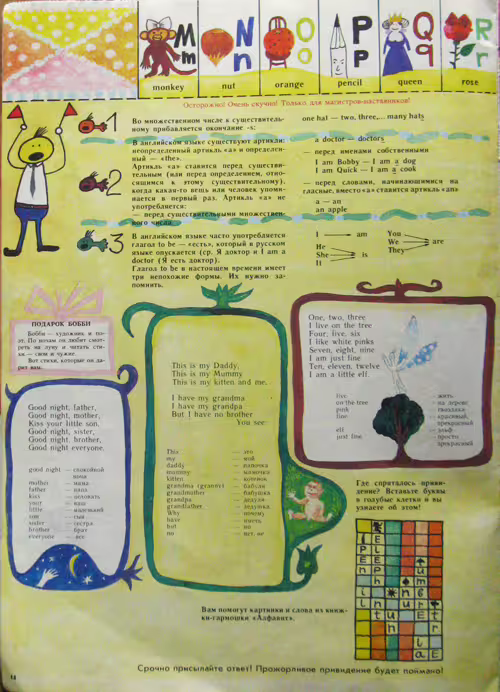 M m
N n
O o
P p
Q q
R r
monkey nut orange pencil queen rose
Осторожно! Очень скучно! Только для магистров-наставников!
1
Во множественном числе к существитель-
ному прибавляется окончание -s:
one hat — two, three,... many hats
2
В английском языке существуют артикли:
неопределенный артикль «a» и определен-
ный — «the».
Артикль «a» ставится перед существи-
тельным (или перед определением, отно-
сящимся к этому существительному),
когда какая-то вещь или человек упоми-
нается в первый раз. Артикль «a» не
употребляется:
— перед существительными множествен-
ного числа.
a doctor — doctors
— перед именами собственными
I am Bobby — I am a dog
I am Quick — I am a cook
— перед словами, начинающимися на
гласные, вместо «a» ставится артикль «an»
a — an
an apple
3
В английском языке часто употребляется
глагол to be — «есть», который в русском
языке опускается (ср. Я доктор и I am a
doctor (Я есть доктор).
Глагол to be в настоящем времени имеет
три непохожие формы. Их нужно за-
помнить.
I — am
He
She is
It
You
We are
They
ПОДАРОК БОББИ
Бобби — художник и по-
эт. По ночам он любит смот-
реть на луну и читать сти-
хи — свои и чужие.
Вот стихи, которые он да-
рит вам.
Good night, father,
Good night, mother,
Kiss your little son,
Good night, sister,
Good night, brother,
Good night everyone.
good night — спокойной
ночи
mother — мама
father — папа
kiss — целовать
your — ваш
little — маленький
son — сын
sister — сестра
brother — брат
everyone — все
This is my Daddy,
This is my Mummy
This is my kitten and me.
I have my grandma
I have my grandpa
But I have no brother
You see:
This — это
my — мой
daddy — папочка
mummy — мамочка
kitten — котенок
grandma (granny) — бабуля
grandmother — бабушка
grandpa — дедуля
grandfather — дедушка
Why — почему
have — иметь
but — но
no — нет, не
One, two, three
I live on the tree
Four, five, six
I like white pinks
Seven, eight, nine
I am just fine
Ten, eleven, twelve
I am a little elf.
live — жить
on the tree — на дереве
pink — гвоздика
fine — красивый,
прекрасный
elf — эльф
just fine — просто
прекрасный
Где спряталось приви-
дение? Вставьте буквы
в голубые клетки и вы
узнаете об этом!
Вам помогут картинки и слова из книж-
ки-гармошки «Алфавит».
Срочно присылайте ответ! Прожорливое привидение будет поймано!
14